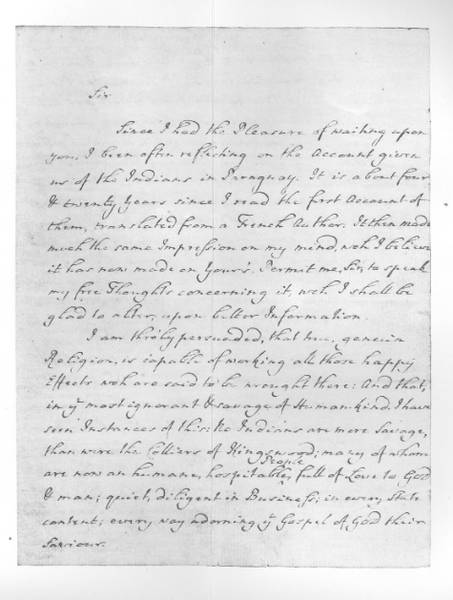 Sir
Since I had the Pleasure of waiting upon
you, I been often reflecting on the Account given
us of the Indians in Paraguay. It is about four
& twenty Years since I read the first Account of
them, translated from a French Author. It then made
much the same Impression on my mind, wch I believe
it has now made on Yours. Permit me, Sir, to speak
my free Thoughts concerning it, wch I shall be
glad to alter, upon better Information.
I am thro'ly persuaded, that true, genuin
Religion, is capable of working all those happy
Effects wch are said to be wrought there: And that,
in ye most ignorant & savage of Humankind. I have
seen Instances of this: No Indians are more savage,
than were the Colliers of Kingswood; many of whom
are now an humane, hospitable People, full of Love to God
& man; quiet, diligent in Business; in every State
content; every way adorning ye Gospel of God their
Saviour.